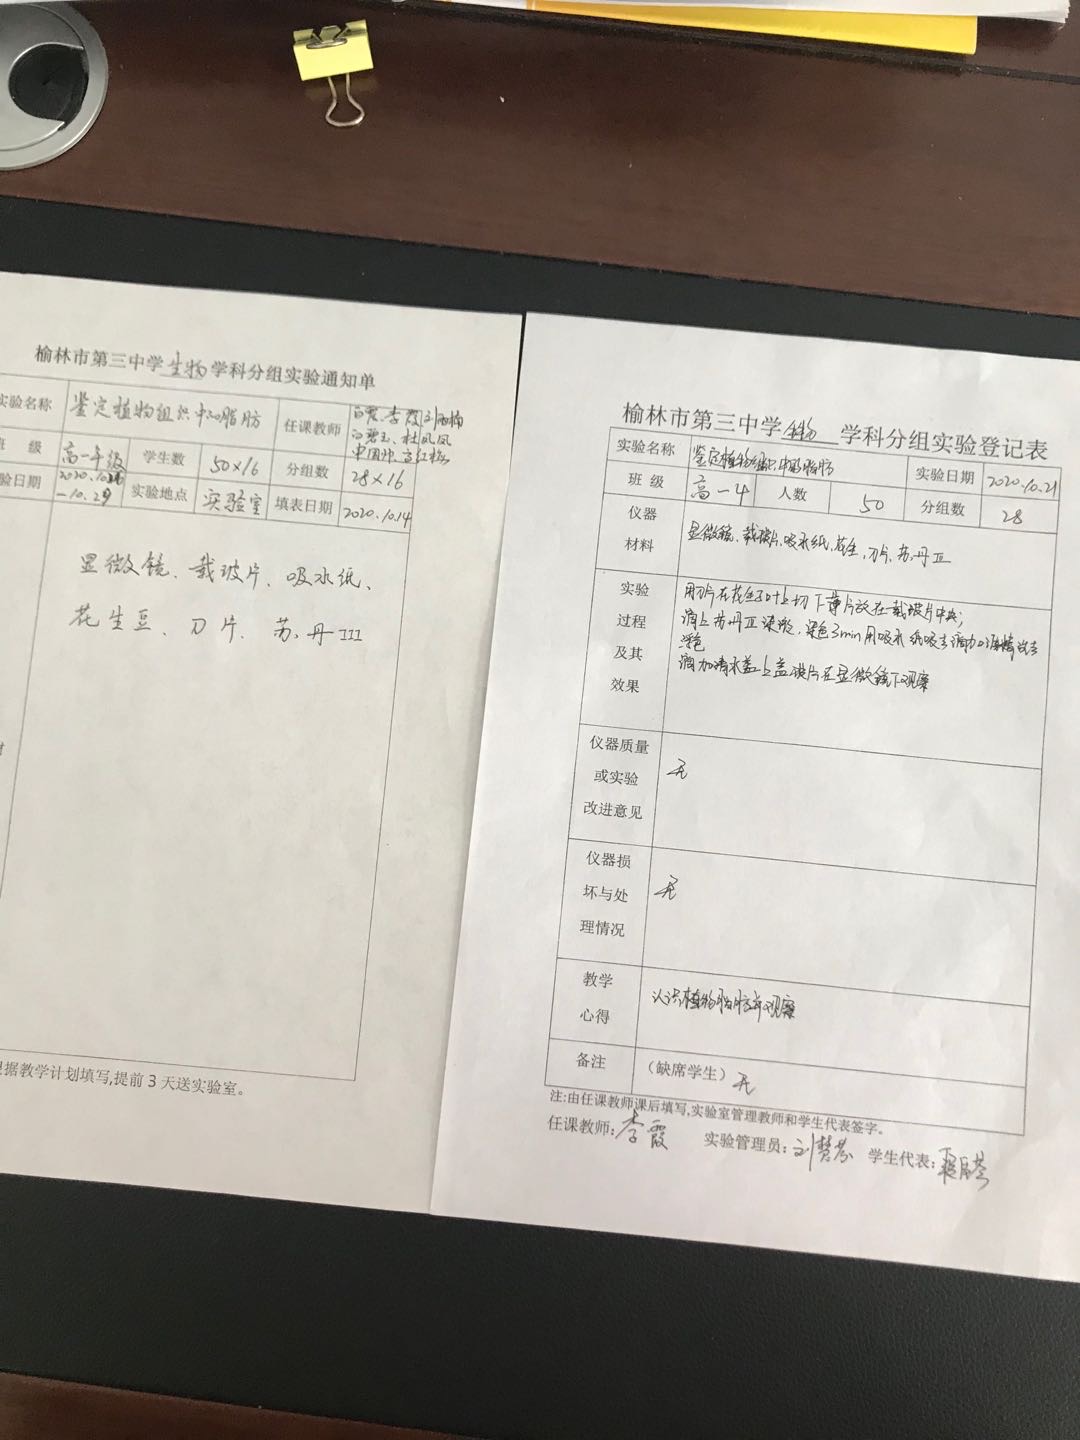 榆林市第三中学生物学科分组实验通知单
实验名称 鉴定植物组织中的脂肪 任课教师
级 高一年级 学生数 50×16 分组数 28×16
验日期 2020.10
-10.29 实验地点 实验室 填表日期 2020.10.14
显微镜、载玻片、吸水纸、
花生豆、刀片、苏丹III
根据教学计划填写,提前3天送实验室。
榆林市第三中学生物学科分组实验登记表
实验名称 鉴定植物组织中的脂肪 实验日期 2020.10.21
班级 高一4 人数 50 分组数 28
仪器
材料
显微镜、载玻片、吸水纸、花生,刀片、苏丹III
实验
过程
及其
效果
用刀片在花生子叶上切下薄片放在载玻片中央;
滴上苏丹III染液,染色3min用吸水纸吸去滴加酒精洗去
浮色
滴加清水盖上盖玻片在显微镜下观察
仪器质量
或实验
改进意见
无
仪器损
坏与处
理情况
无
教学
心得
认识植物脂肪并观察
备注 (缺席学生) 无
注:由任课教师课后填写,实验室管理教师和学生代表签字。
任课教师:李霞 实验管理员:刘慧芬 学生代表: